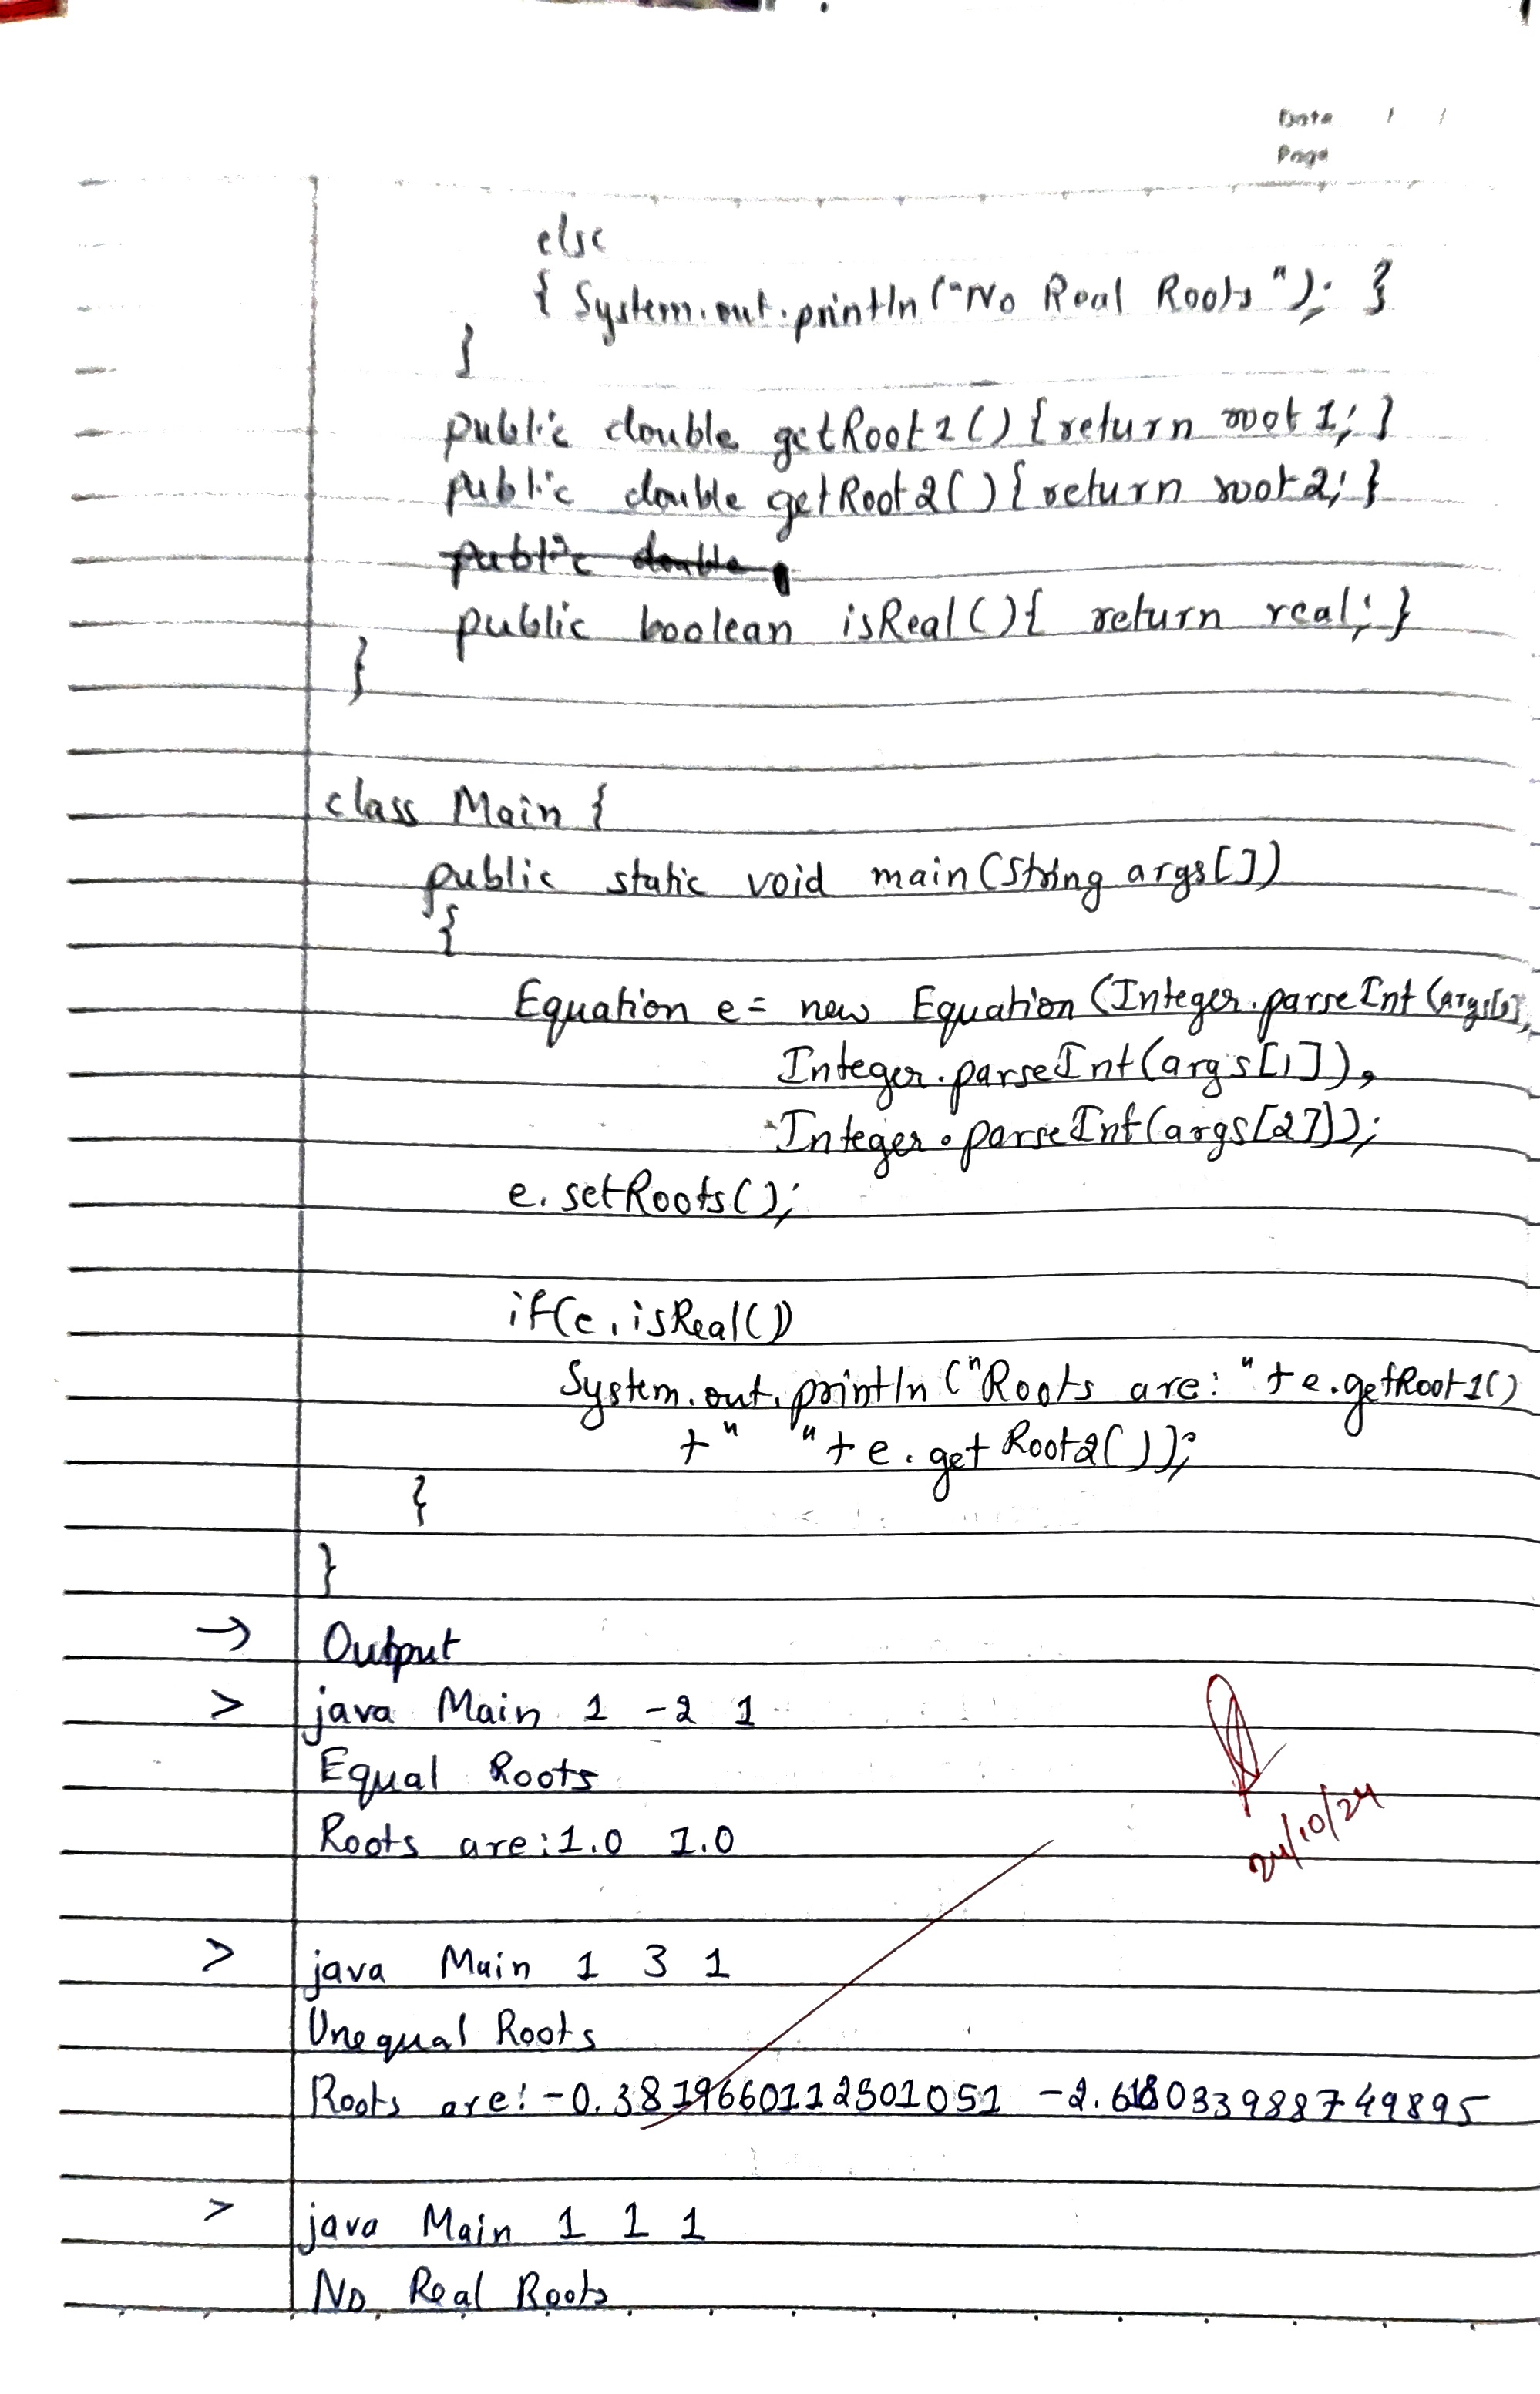 Date / /
Page
else
{ System.out.println("No Real Roots"); }
}
public double getRoot1(){return root1; }
public double getRoot2(){return root2; }
public double
public boolean isReal(){ return real; }
}
class Main {
public static void main(String args[])
{
Equation e = new Equation (Integer.parseInt(args[0]),
Integer.parseInt(args[1]),
Integer.parseInt(args[2]));
e.setRoots();
if(e.isReal())
System.out.println("Roots are: "+e.getRoot1()
+" "+e.getRoot2());
}
}
→ Output
> java Main 1 -2 1
Equal Roots
Roots are:1.0 1.0
24/10/24
> java Main 1 3 1
Unequal Roots
Roots are: -0.3819660112501051 -2.618033988749895
> java Main 1 1 1
No Real Roots